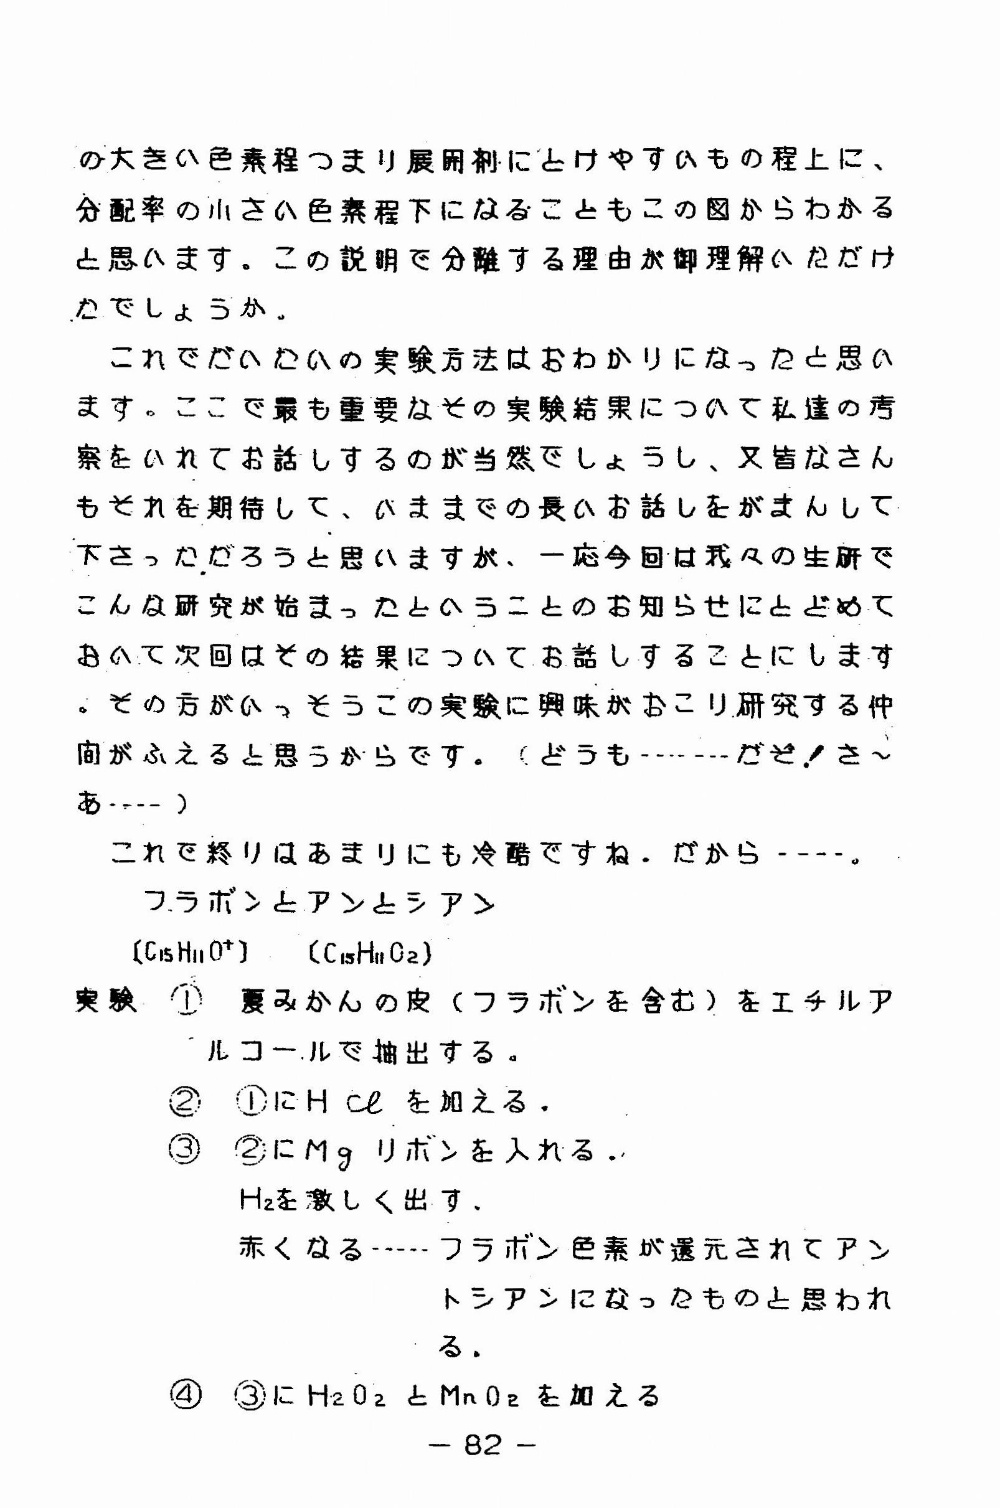 の大きい色素程つまり展開剤にとけやすいもの程上に、
分配率の小さい色素程下になることもこの図からわかる
と思います。この説明で分離する理由が御理解いただけ
たでしょうか。
これでだいたいの実験方法はおわかりになったと思い
ます。ここで最も重要なその実験結果について私達の考
察をいれてお話しするのが当然でしょうし、又皆なさん
もそれを期待して、いままでの長いお話しをがまんして
下さっただろうと思いますが、一応今回は我々の生研で
こんな研究が始まったということのお知らせにとどめて
おいて次回はその結果についてお話しすることにします
。その方がいっそうこの実験に興味がおこり研究する仲
間がふえると思うからです。(どうも-------だぞ!さ～
あ-----)
これで終りはあまりにも冷酷ですね.だから-----。
フラボンとアンとシアン
(C15H11O⁺) (C15H11O2)
実験 ① 夏みかんの皮(フラボンを含む)をエチルア
ルコールで抽出する。
② ①にHClを加える.
③ ②にMgリボンを入れる.
H2を激しく出す.
赤くなる-----フラボン色素が還元されてアン
トシアンになったものと思われ
る.
④ ③にH2O2とMnO2を加える
- 82 -